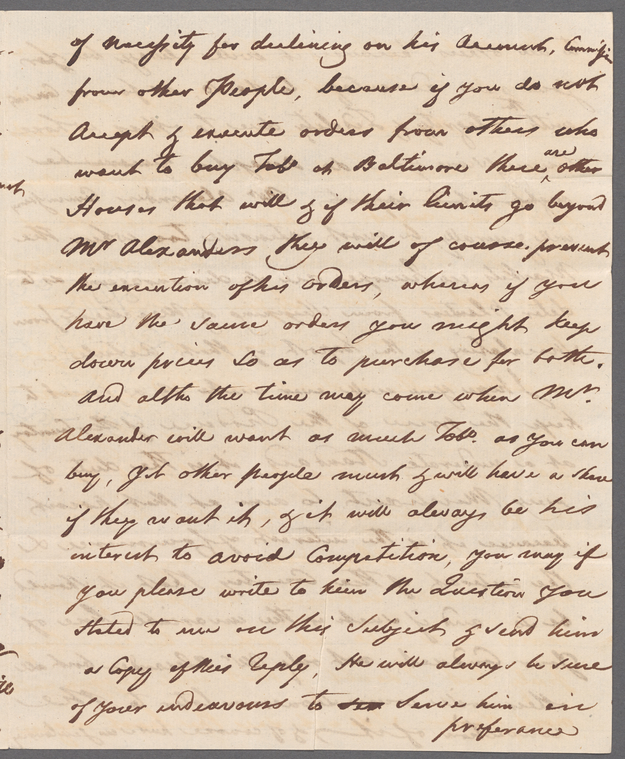 of necessity for declining on his Account, Commissi
from other People, because if you do not
Accept & execute orders from others who
want to buy Tobo. at Baltimore there are other
Houses that will & if their limits go beyond
Mr Alexanders they will of course prevent
the execution of his orders, whereas if you
have the same orders you might keep
down prices so as to purchase for both.
And altho the time may come when Mr.
Alexander will want as much Tobo. as you can
buy, yet other people must & will have a share
if they want it, & it will always be his
interest to avoid Competition, you may if
you please write to him the Question you
stated to me on this Subject & send him
a Copy of this Reply, He will always be sure
of your endeavours to Serve him in
preferance